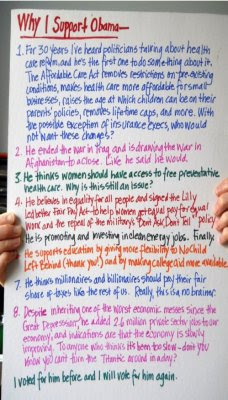 Why I Support Obama—
1. For 30 years I've heard politicians talking about health
care reform, and he's the first one to do something about it.
The Affordable Care Act removes restrictions on pre-existing
conditions, makes health care more affordable for small
businesses, raises the age at which children can be on their
parents' policies, removes lifetime caps, and more. With
the possible exception of insurance execs, who would
not want these changes?
2. He ended the war in Iraq and is drawing the war in
Afghanistan to a close. Like he said he would.
3. He thinks women should have access to free preventative
health care. Why is this still an issue?
4. He believes in equality for all people and signed the Lilly
Ledbetter Fair Pay Act to help women get equal pay for equal
work and the repeal of the military's "Don't Ask, Don't Tell" policy.
He is promoting and investing in clean energy jobs. Finally.
He supports education by giving more flexibility to No Child
Left Behind (thank you!) and by making college aid more available.
7. He thinks millionaires and billionaires should pay their fair
share of taxes like the rest of us. Really, this is a no brainer.
8. Despite inheriting one of the worst economic messes since the
Great Depression, he added 2.6 million private sector jobs to our
economy, and indications are that the economy is slowly
improving. To anyone who thinks it's been too slow - don't you
know you can't turn the Titanic around in a day?
I voted for him before and I will vote for him again.